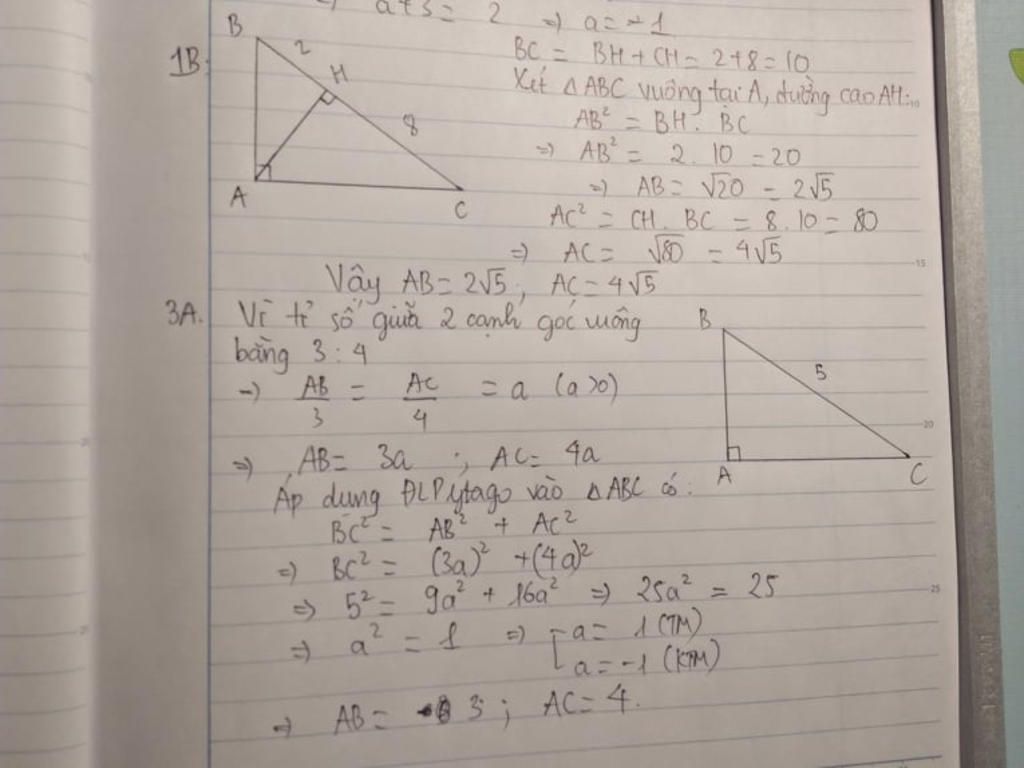 a+3 = 2 => a = -1
1B.
B
2
H
8
A
C
BC = BH + CH = 2+8 = 10
Xét △ABC vuông tại A, đường cao AH:
AB² = BH . BC
=> AB² = 2 . 10 = 20
=> AB = √20 = 2√5
AC² = CH . BC = 8 . 10 = 80
=> AC = √80 = 4√5
Vậy AB = 2√5 ; AC = 4√5
3A. Vì tỉ số giữa 2 cạnh góc vuông
bằng 3 : 4
B
5
A
C
=> AB/3 = AC/4 = a (a>0)
=> AB = 3a ; AC = 4a
Áp dụng ĐLPytago vào △ABC có:
BC² = AB² + AC²
=> BC² = (3a)² + (4a)²
=> 5² = 9a² + 16a² => 25a² = 25
=> a² = 1 => [ a = 1 (TM)
a = -1 (KTM)
=> AB = 3 ; AC = 4.
10
15
20
25